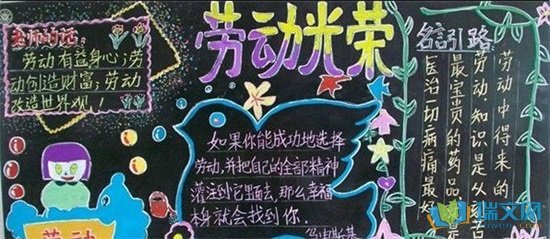 老师的话
劳动有益身心;劳
动创造财富;劳动
改造世界观!
劳动光荣
如果你能成功地选择
劳动,并把自己的全部精神
灌注到它里面去,那么幸福
本身就会找到你.
乌申斯基
名言引路
医治一切病痛最好
最宝贵的药品是
劳动.知识是从刻苦
劳动中得来的
劳动
瑞文网